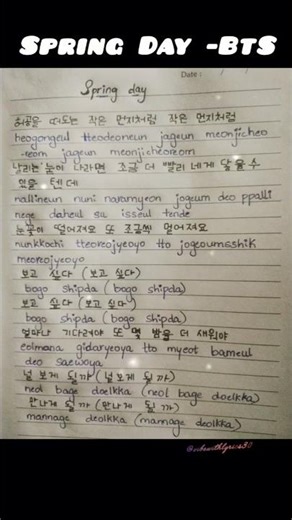 Spring Day -BTS
Date :
Spring day
허공을 떠도는 작은 먼지처럼 작은 먼지처럼
heogongeul tteodoneun jageun meonjicheo
-reom jageun meonjicheoreom
날리는 눈이 나라면 조금 더 빨리 네게 닿을 수
있을 텐데
nallineun nuni naramyeon jogeum deo ppalli
nege daheul su isseul tende
눈꽃이 떨어져요 또 조금씩 멀어져요
nunkkochi tteoreojyeoyo tto jogeumsshik
meoreojyeoyo
보고 싶다 (보고 싶다)
bogo shipda (bogo shipda)
보고 싶다 (보고 싶다)
bogo shipda (bogo shipda)
얼마나 기다려야 또 몇 밤을 더 새워야
eolmana gidaryeoya tto myeot bameul
deo saewoya
널 보게 될까 (널 보게 될까)
neol bage doelkka (neol bage doelkka)
만나게 될까 (만나게 될까)
mannage deolkka (mannage deolkka)